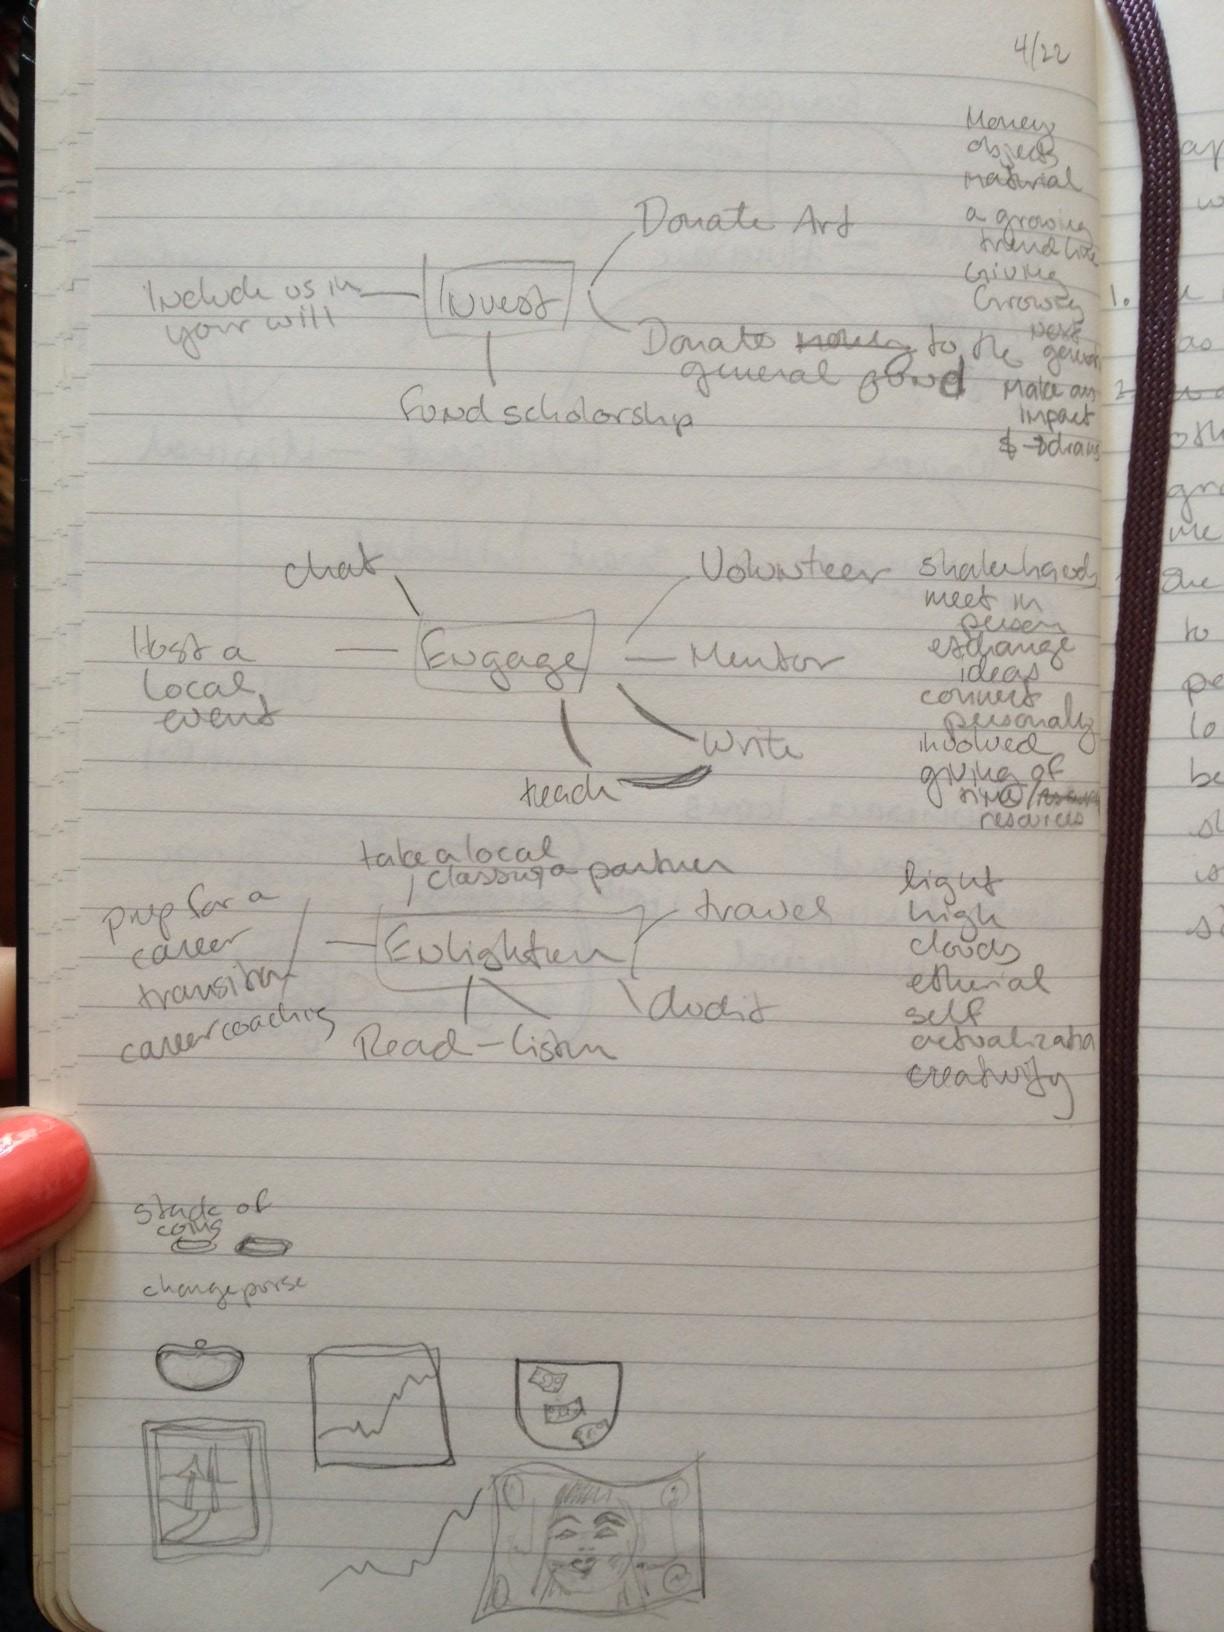 4/22
Money
objects
material
a growing
trend line
Giving
Growing
next
Make an
impact
$ →
Donate Art
Include us in
your will
Invest
Donate money to the
general fund
fund scholarship
chat
Volunteer
Host a
local
event
Engage
Mentor
Write
teach
shake hands
meet in
person
exchange
ideas
connect
personally
involved
giving of
time/
resources
take a local
class
partner
prep for a
career
transition
career coaching
Enlighten
travel
audit
Read - listen
light
high
clouds
etherial
self
actualization
creativity
stack of
coins
change purse
1.
2
to
is